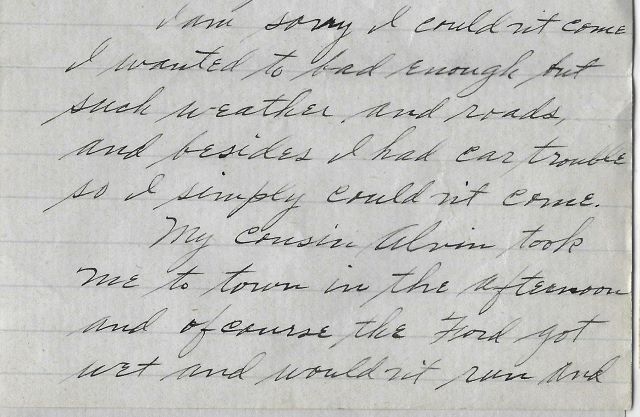 I am sorry I could n't come
I wanted to bad enough but
such weather, and roads,
and besides I had car trouble
so I simply could n't come.
My cousin Alvin took
me to town in the afternoon
and ofcourse the Ford got
wet and would n't run and